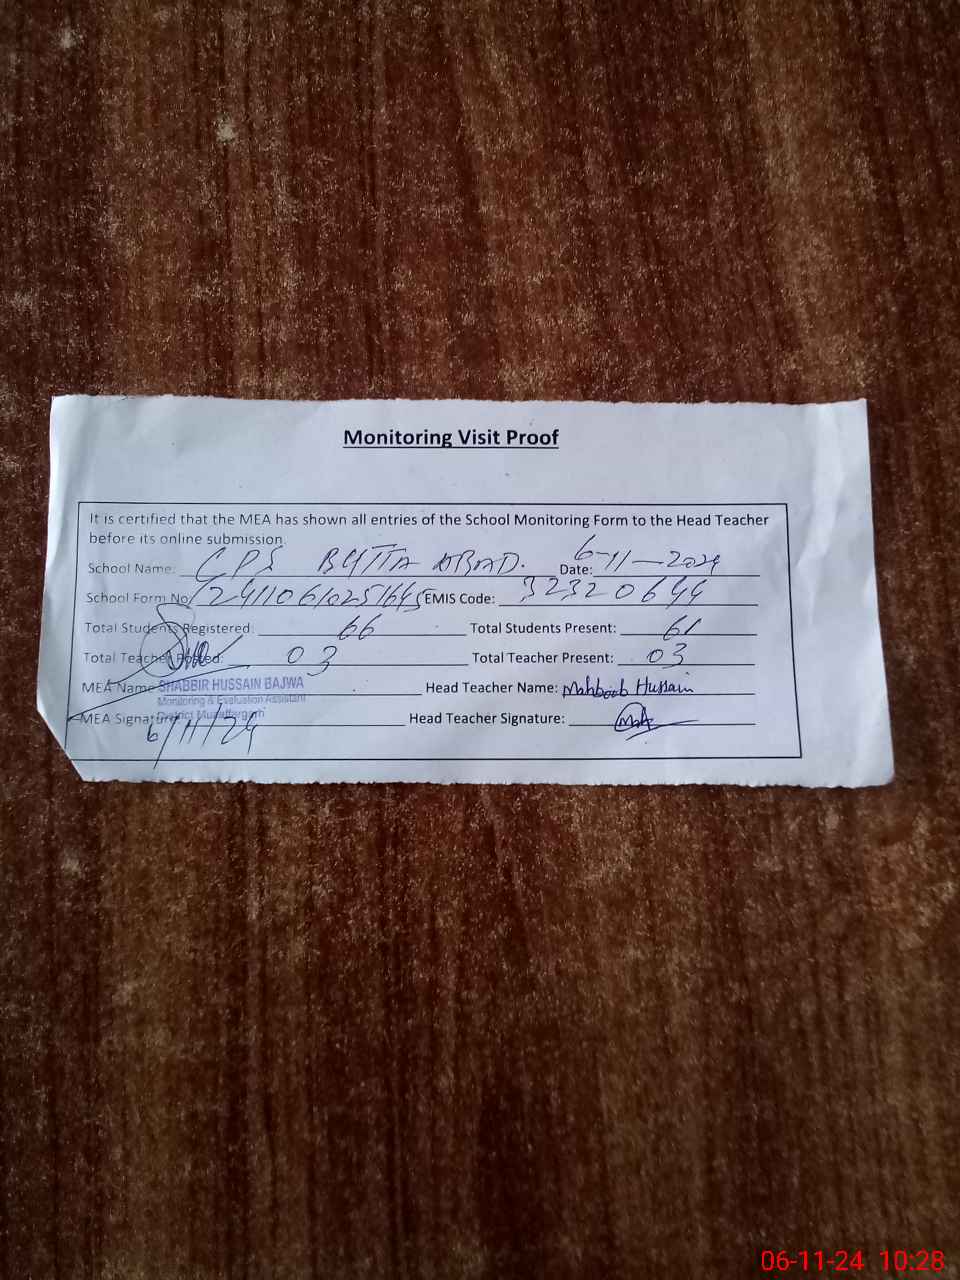 Monitoring Visit Proof
It is certified that the MEA has shown all entries of the School Monitoring Form to the Head Teacher
before its online submission.
School Name: CPS BUTTA ABAD. Date: 6-11-2024
School Form No EMIS Code: 32320644
Total Students Registered: 66 Total Students Present: 61
Total Teacher Posted: 03 Total Teacher Present: 03
MEA Name SHABBIR HUSSAIN BAJWA Head Teacher Name: Mahboob Hussain
Monitoring & Evaluation Assistant
District Muzaffargarh
MEA Signature Head Teacher Signature:
6/11/24
06-11-24 10:28